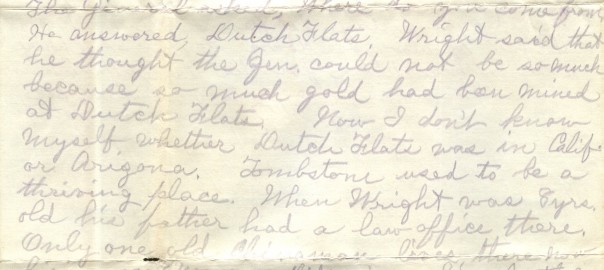 The Jim's I asked, where do you come from,
He answered, Dutch Flats. Wright said that
he thought the Jim. could not be so much
because so much gold had been mined
at Dutch Flats. Now I don't know
myself, whether Dutch Flats was in Calif.
or Arizona. Tombstone used to be a
thriving place. When Wright was 8 yrs.
old his father had a law-office there.
Only one old Chinaman lives there now